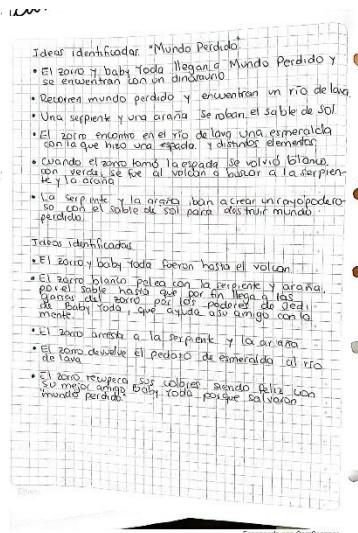 Ideas identificadas "Mundo Perdido"
• El zorro y baby Yoda llegan a Mundo Perdido y
se encuentran con un dinosaurio
• Recorren mundo perdido y encuentran un río de lava
• Una serpiente y una araña se roban el sable de sol
• El zorro encontro en el río de lava una esmeralda
con la que hizo una espada y distintos elementos
• Cuando el zorro tomó la espada se volvió blanco
con verde, se fue al volcán a buscar a la serpien-
te y la araña
• La serpiente y la araña iban a crear un rayo podero-
so con el sable de sol para destruir mundo
perdido.
Ideas identificadas
• El zorro y baby Yoda fueron hasta el volcan.
• El zorro blanco pelea con la serpiente y araña,
por el sable hasta que por fin llega a las
garras del zorro por los poderes de jedi
de Baby Yoda, que ayuda a su amigo con la
mente.
• El zorro arresta a la serpiente y la araña
• El zorro devuelve el pedazo de esmeralda al río
de lava
• El zorro recupera sus colores siendo feliz con
su mejor amigo Baby Yoda porque salvaron
"mundo perdido"